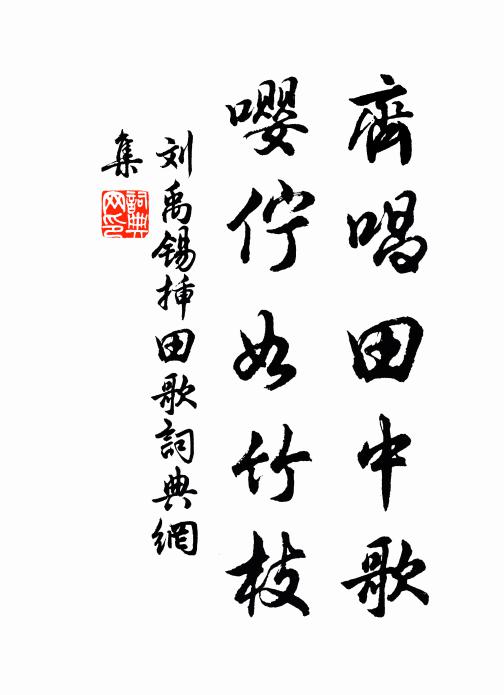 齊唱田中歌
嚶佇如竹枝
刘禹锡插田歌詞典網
集
詞典
网印